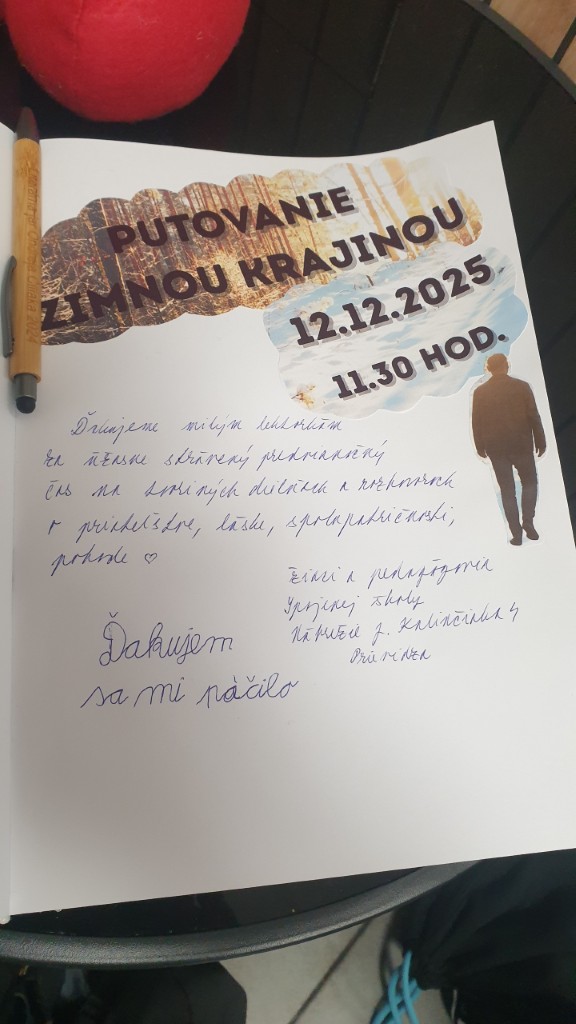 PUTOVANIE
ZIMNOU KRAJINOU
12.12.2025
11.30 HOD.
Ďakujeme milým lektorkám
za úžasne strávený predvianočný
čas na tvorivých dielňach a rozhovoroch
o priateľstve, láske, spolupatričnosti,
pohode ♡
Žiaci a pedagógovia
Spojenej školy
Nábrežie J. Kalinčiaka 4
Prievidza
Ďakujem
sa mi páčilo